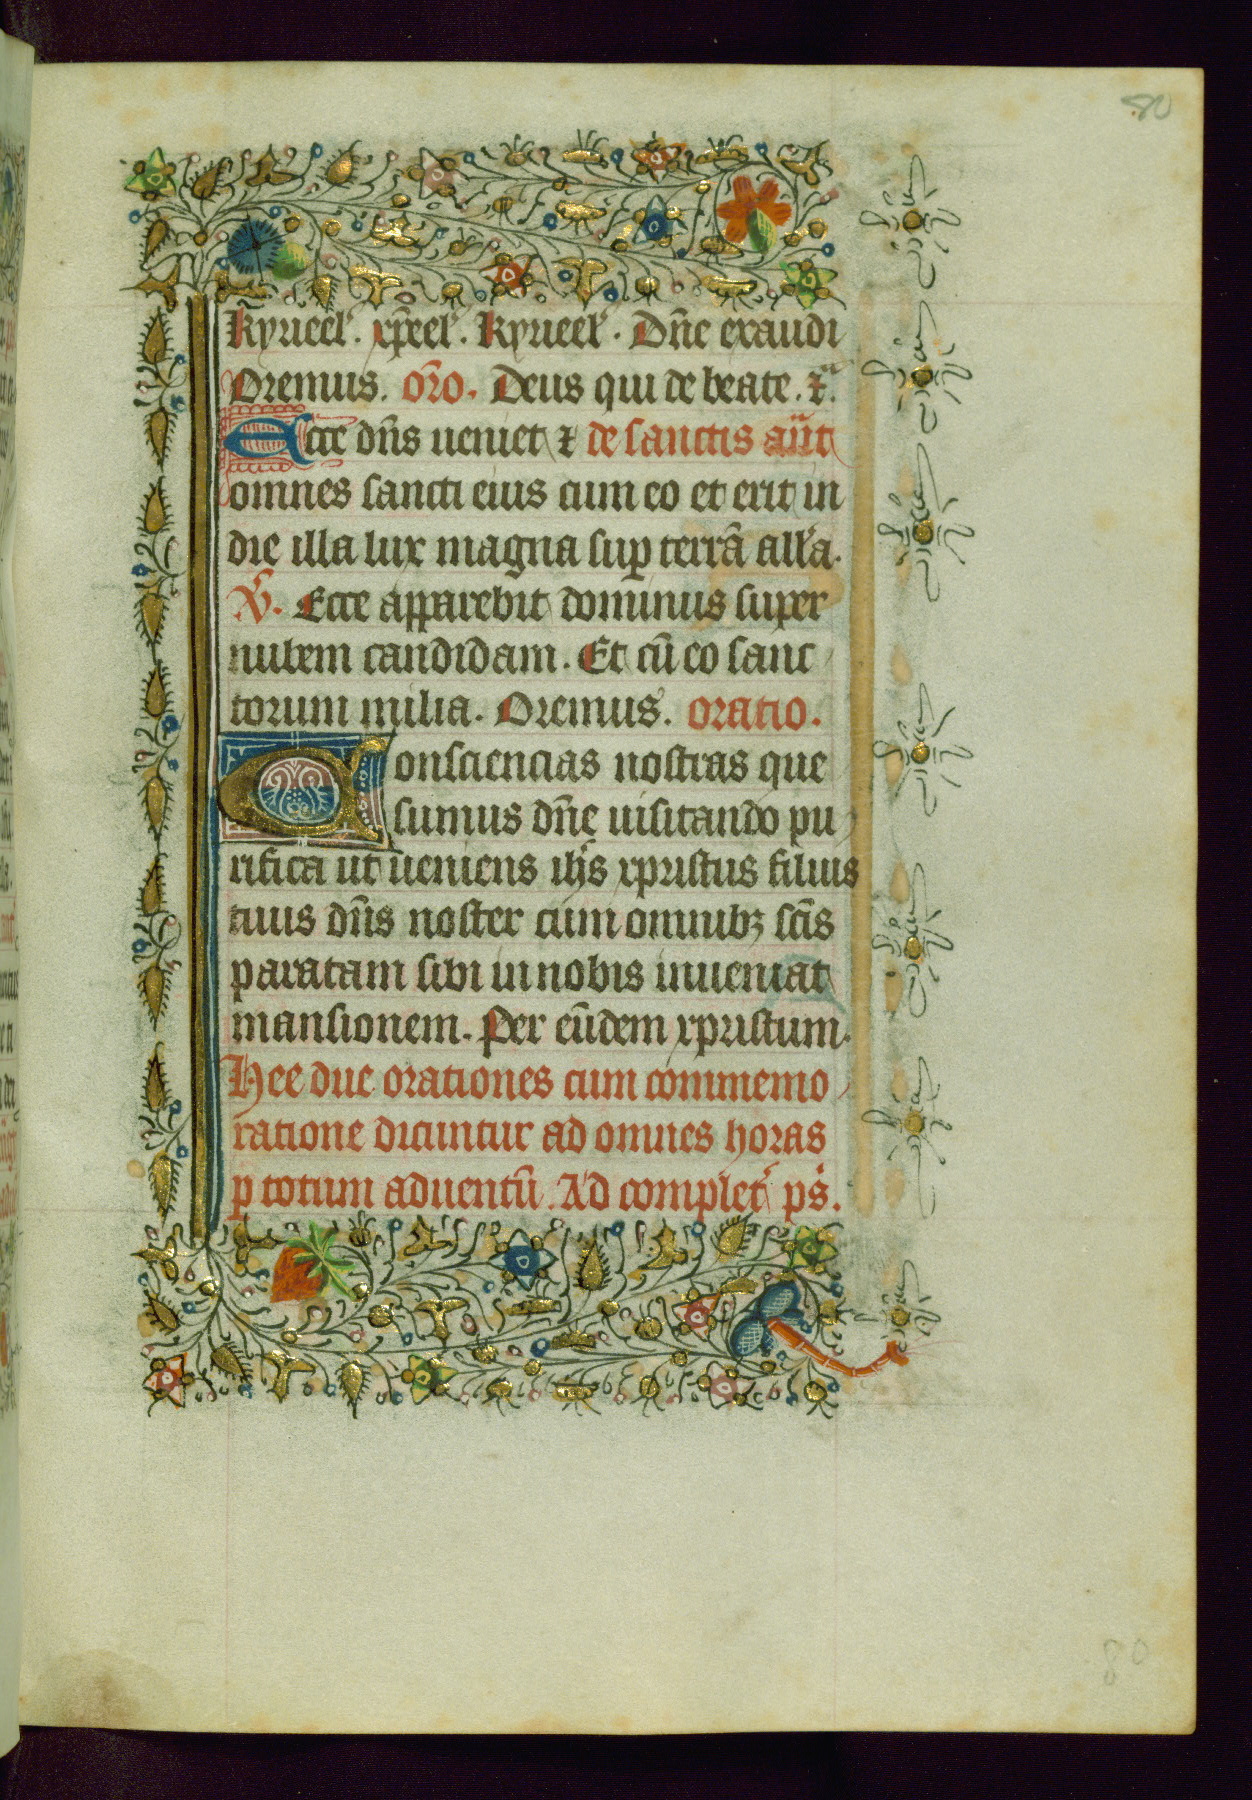 80
kyrieel'. xp̄eel'. kyrieel'. Dn̄e exaudi
Oremus. or̄o. Deus qui de beate. ⁊c̄.
Ecce dn̄s ueniet ⁊ de sanctis an̄t
omnes sancti eius cum eo et erit in
die illa lux magna sup̱ terrā all'a.
V̷. Ecce apparebit dominus super
nubem candidam. Et cū eo sanc
torum milia. Oremus. oratio.
Consciencias nostras que
sumus dn̄e uisitando pu
rifica ut ueniens ih̄s xpristus filius
tuus dn̄s noster cum omnibꝫ sc̄is
paratam sibi in nobis inueniat
mansionem. Per eūdem xpristum.
Hee due orationes cum commemo
ratione dicuntur ad omnes horas
ꝑ totum aduentū. Ad complet' ps̄.
80